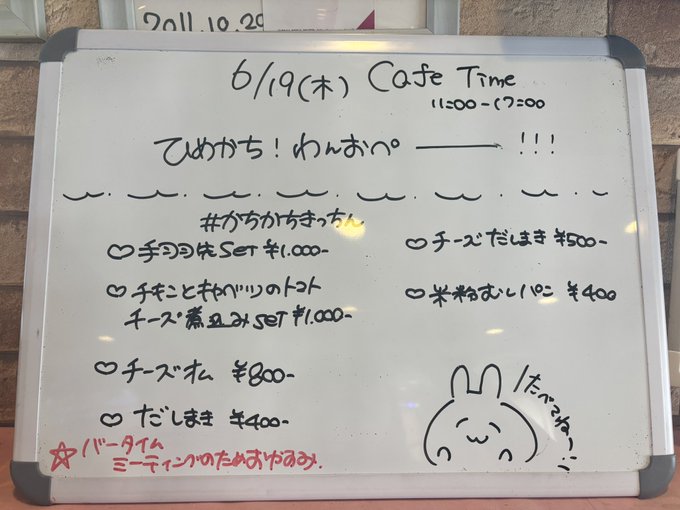 2011.10.29
6/19(木) Cafe Time
11:00-17:00
ひめかち！わんおぺ ――― !!!
#かちかちきっちん
♡手羽先SET ¥1.000-
♡チキンとキャベツのトマト
チーズ煮込みSET ¥1.000-
♡チーズオム ¥800-
♡だしまき ¥400-
☆バータイム
ミーティングのためおやすみ.
♡チーズだしまき ¥500-
♡米粉むしパン ¥400
たべてねー!!